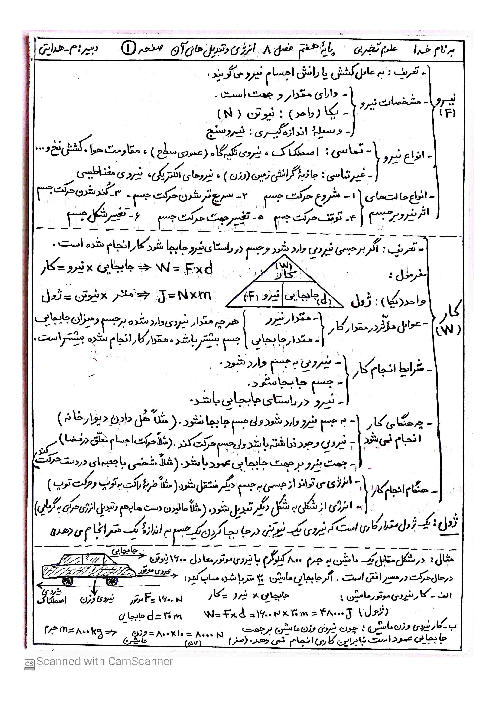 به نام خدا   علوم تجربی   پایه هفتم   فصل ۸   انرژی و تبدیل های آن   صفحه ۱   دبیر: م-هدایتی
نیرو (F)
- تعریف: به عامل کشش یا رانش اجسام نیرو می گویند.
- مشخصات نیرو
- دارای مقدار و جهت است.
- یکا (واحد): نیوتن (N)
- وسیلهٔ اندازه گیری: نیروسنج
- انواع نیرو
- تماسی: اصطکاک، نیروی تکیه گاه (عمودی سطح)، مقاومت هوا، کشش نخ و ...
- غیرتماسی: جاذبهٔ گرانش زمین (وزن)، نیروهای الکتریکی، نیروی مغناطیسی
- انواع حالت های اثر نیرو بر جسم
۱- شروع حرکت جسم   ۲- سریع تر شدن حرکت جسم   ۳- کُند شدن حرکت جسم
۴- توقف حرکت جسم   ۵- تغییر جهت حرکت جسم   ۶- تغییر شکل جسم
کار (W)
- تعریف: اگر بر جسمی نیرویی وارد شود و جسم در راستای نیرو جابجا شود کار انجام شده است.
- فرمول: (W) کار   (F) نیرو   جابجایی (d)   W = F×d ⇒ جابجایی × نیرو = کار
- واحد (یکا): ژول   J = N×m ⇒ متر × نیوتن = ژول
- عوامل مؤثر در مقدار کار
- مقدار نیرو
- مقدار جابجایی
هر چه مقدار نیروی وارد شده بر جسم و میزان جابجایی
جسم بیشتر باشد، مقدار کار انجام شده بیشتر است.
- شرایط انجام کار
- نیرویی به جسم وارد شود.
- جسم جابجا شود.
- نیرو در راستای جابجایی باشد.
- چه هنگامی کار انجام نمی شود
- به جسم نیرو وارد شود ولی جسم جابجا نشود. (مثلاً هُل دادن دیوار خانه)
- نیرویی وجود نداشته باشد ولی جسم حرکت کند. (مثلاً حرکت اجسام معلق در فضا)
- جهت نیرو بر جهت جابجایی عمود باشد. (مثلاً شخصی با جعبه ای در دست حرکت کند)
- هنگام انجام کار
- انرژی می تواند از جسمی به جسم دیگر منتقل شود. (مثلاً ضربهٔ راکت به توپ و حرکت توپ)
- انرژی از شکلی به شکل دیگر تبدیل شود. (مثلاً مالیدن دست ها به هم و تبدیل انرژی حرکتی به گرمایی)
ژول: یک ژول مقدار کاری است که نیروی یک نیوتنی در جابجا کردن یک جسم به اندازهٔ یک متر انجام می دهد.
مثال: در شکل مقابل یک ماشین به جرم ۸۰۰ کیلوگرم با نیروی موتور معادل ۱۶۰۰ نیوتن
در حال حرکت در مسیر افقی است. اگر جابجایی ماشین ۳۰ متر باشد، حساب کنید:
جابجایی   نیروی موتور   نیروی وزن   نیروی اصطکاک
الف- کار نیروی موتور ماشین:   جابجایی × نیرو = کار   موتور F = ۱۶۰۰ N
(ژول) W = F×d = ۱۶۰۰ N × ۳۰ m = ۴۸۰۰۰ J   جابجایی d = ۳۰ m
ب- کار نیروی وزن ماشین: چون نیروی وزن ماشین بر جهت   وزن ماشین = ۸۰۰×۱۰ = ۸۰۰۰ N ⇐ جرم m = ۸۰۰ kg
جابجایی عمود است بنابراین کاری انجام نمی دهد. (صفر)
Scanned with CamScanner